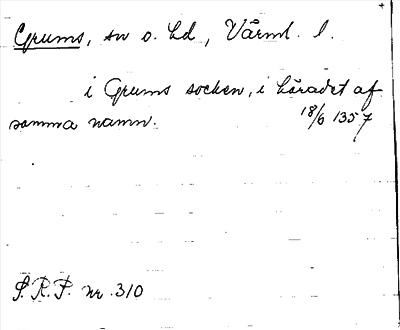 Grums, sn o. hd, Värml. l.
i Grums socken, i häradet af
samma namn. 18/6 1357
S.R.P. nr 310